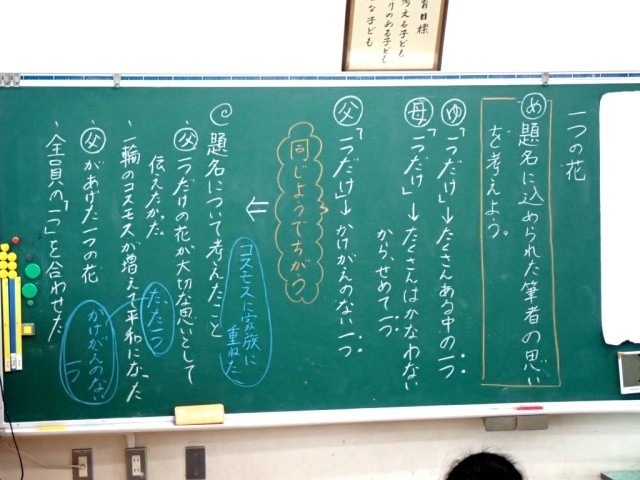 育目標
考える子ども
りのある子ども
な子ども
一つの花
め 題名に込められた筆者の思い
を考えよう。
ゆ 「一つだけ」→たくさんある中の一つ
母 「一つだけ」→たくさんはかなわない
から、せめて一つ
父 「一つだけ」→かけがえのない一つ
同じようでちがう
⇐
題名について考えたこと
父 一つだけの花が大切な思いとして
伝えたかた。
一輪のコスモスが増えて平和になった
父があげた一つの花
全員の「一つ」を合わせた
コスモスに家族に
重ねた
たた一つ
かけがえのない
一つ